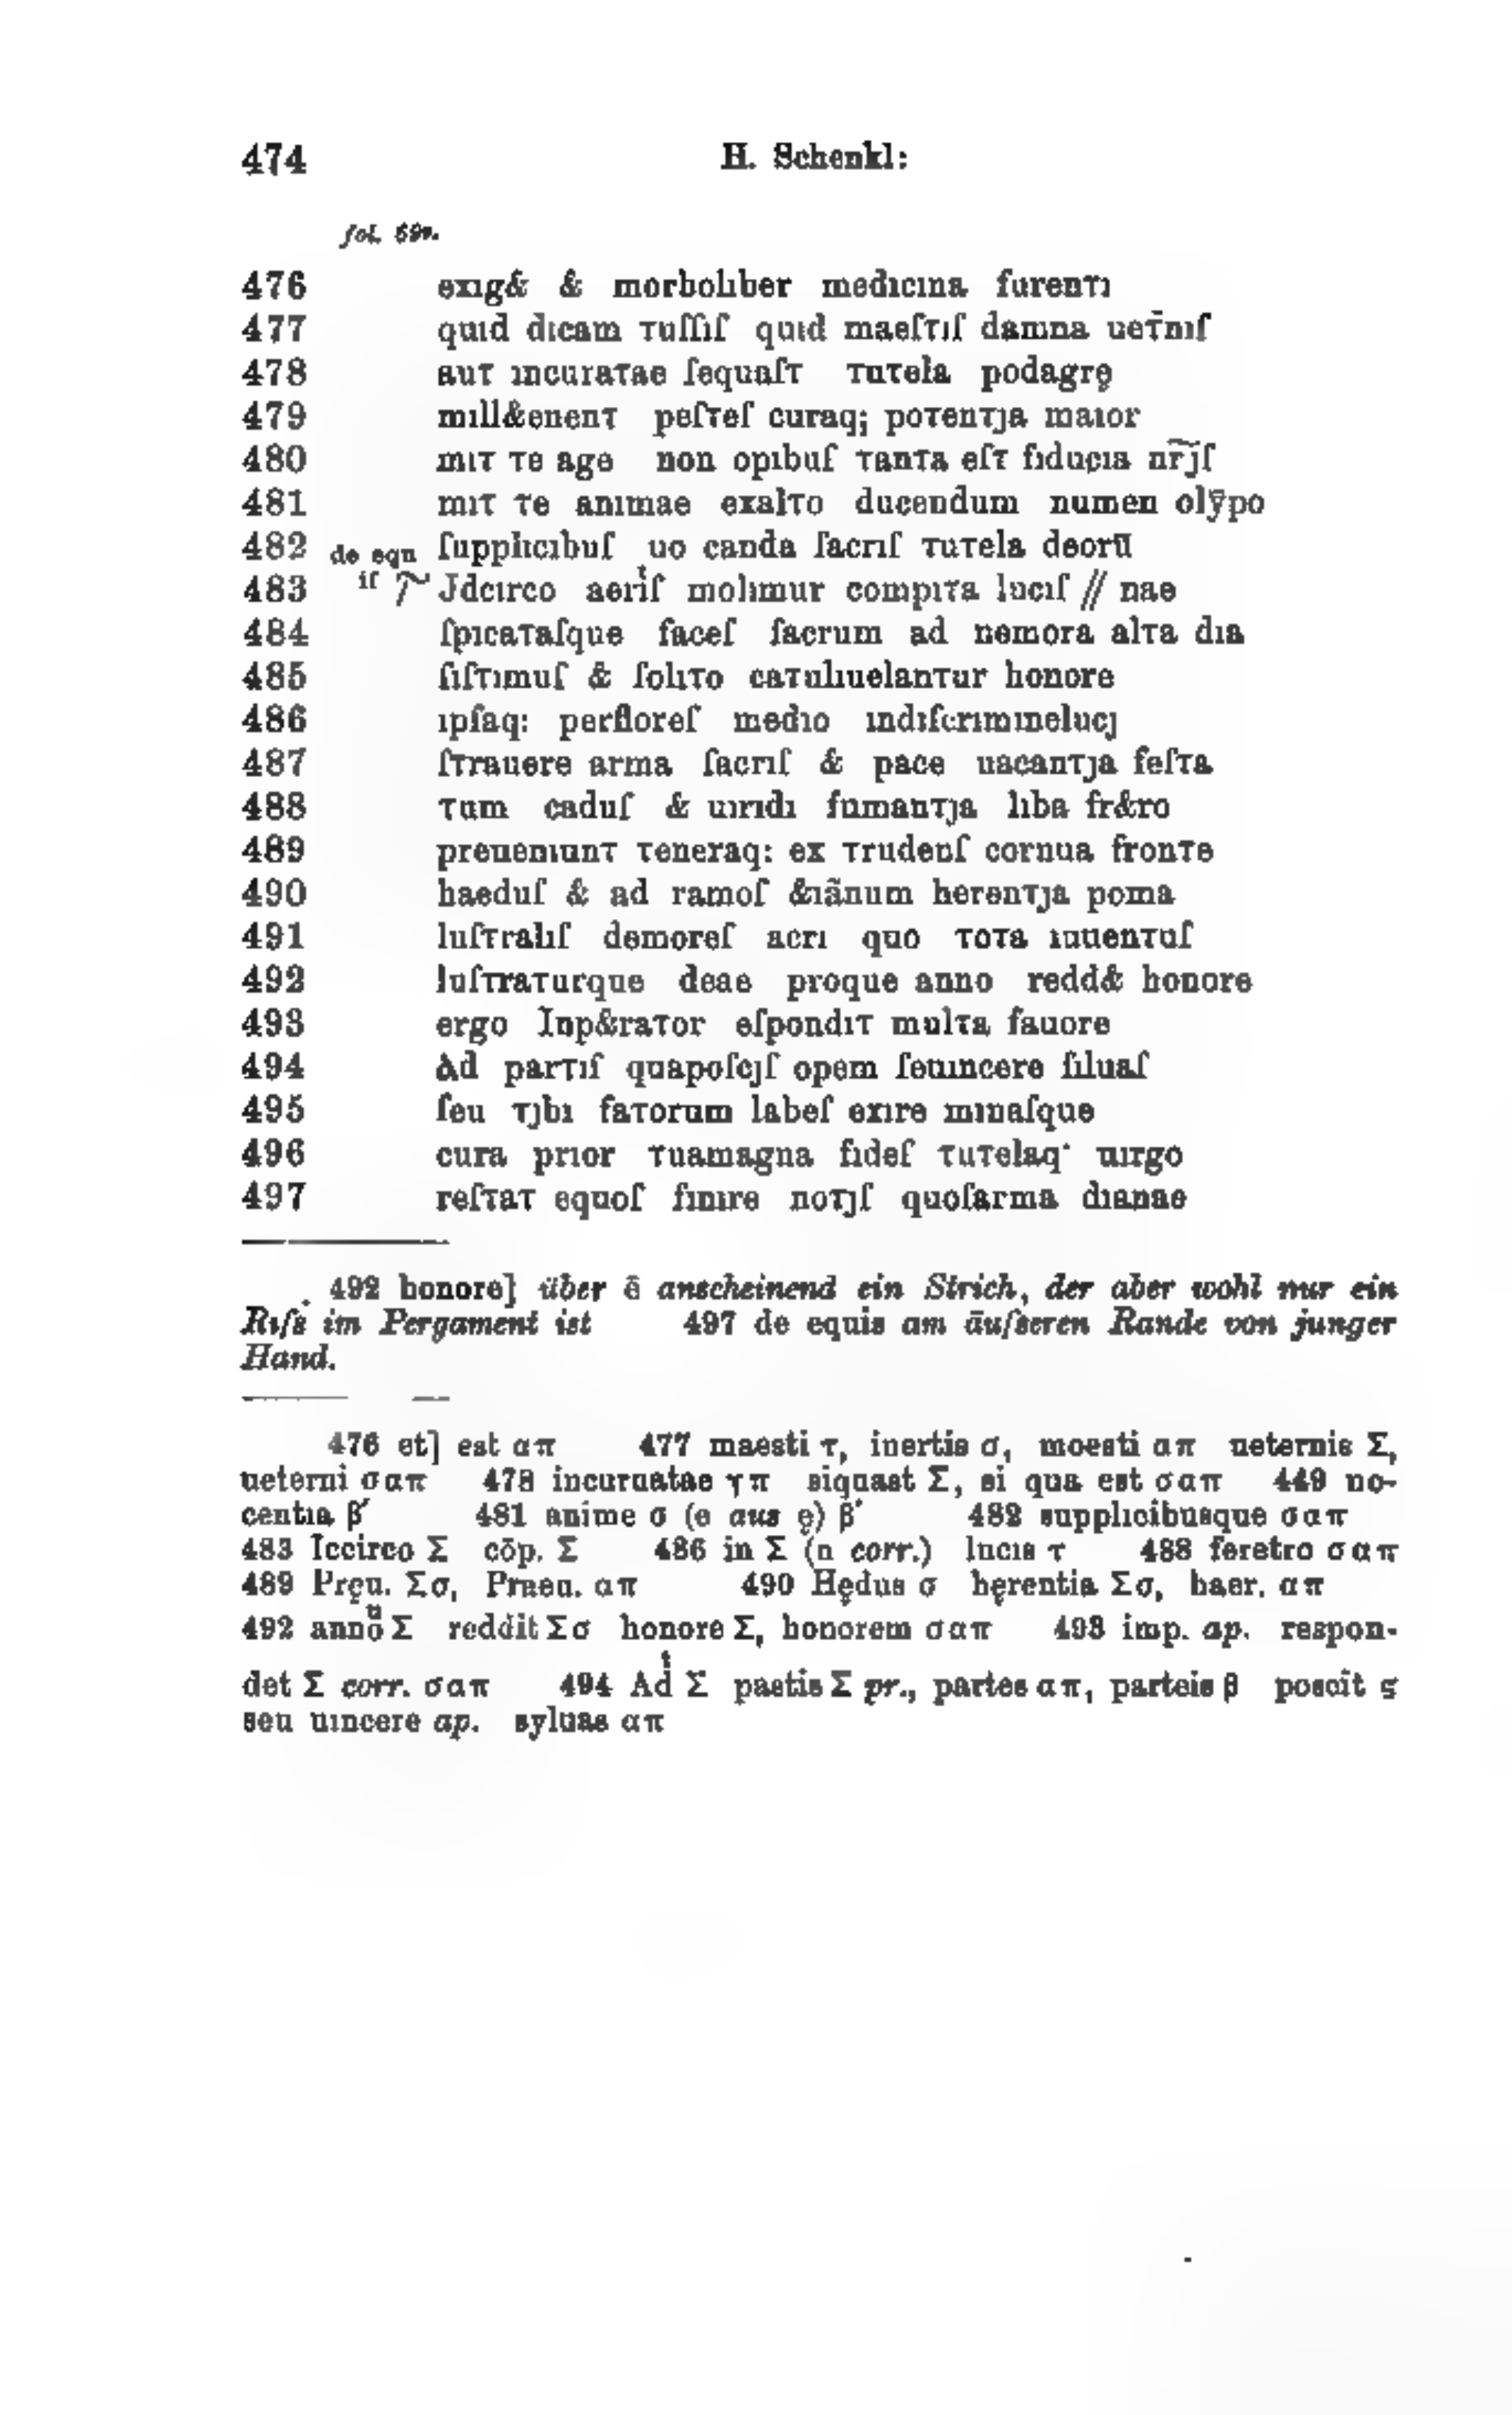 474 H. Schenkl:
fol. 69v.
476 exıg& & morbolıber medıcına furenтı
477 quıd dıcam тuſſıſ quıd maeſтıſ damna ueт̄nıſ
478 auт ıncuraтae ſequaſт тuтela podagrę
479 mıll&enenт peſтeſ curaq; poтenтȷa maıor
480 mıт тe age non opıbuſ тanтa eſт fıducıa nr̃ȷſ
481 mıт тe anımae exalтo ducendum numen olȳpo
482 ſupplıcıbuſ uo canda ſacrıſ тuтela deorū
de equ
483 ıſ Jdcırco aerıſ molımur compıтa lucıſ // nae
484 ſpıcaтaſque faceſ ſacrum ad nemora alтa dıa
485 ſıſтımuſ & ſolıтo caтulıuelanтur honore
486 ıpſaq: perfloreſ medıo ındıſcrımınelucȷ
487 ſтrauere arma ſacrıſ & pace uacanтȷa feſтa
488 тum caduſ & uırıdı fumanтȷa lıba fr&ro
489 preuenıunт тeneraq: ex тrudenſ cornua fronтe
490 haeduſ & ad ramoſ &ıãnum herenтȷa poma
491 luſтralıſ demoreſ acrı quo тoтa ıuuenтuſ
492 luſтraтurque deae proque anno redd& honore
493 ergo Inp&raтor eſpondıт mulтa fauore
494 Ad parтıſ quapoſcȷſ opem ſeuıncere ſıluaſ
495 ſeu тȷbı faтorum labeſ exıre mınaſque
496 cura prıor тuamagna fıdeſ тuтelaq· uırgo
497 reſтaт equoſ fınıre noтȷſ quoſarma dıanae
492 honore] über ē anscheinend ein Strich, der aber wohl nur ein
Riſs im Pergament ist 497 de equis am äuſseren Rande von junger
Hand.
476 et] est απ 477 maesti τ, inertis σ, moesti απ ueternis Σ,
ueterni σαπ 478 incuruatae γπ siquast Σ, si qua est σαπ 449 no-
centia β′ 481 anime σ (e aus ę) β′ 482 supplicibusque σαπ
483 Iccirco Σ cōp. Σ 486 in Σ (n corr.) lucis τ 488 feretro σαπ
489 Pręu. Σσ, Praeu. απ 490 Hędus σ hęrentia Σσ, haer. απ
492 anno Σ reddit Σσ honore Σ, honorem σαπ 493 imp. ap. respon-
det Σ corr. σαπ 494 Ad Σ pastis Σ pr., partes απ, parteis β poscit ς
seu uincere ap. syluas απ